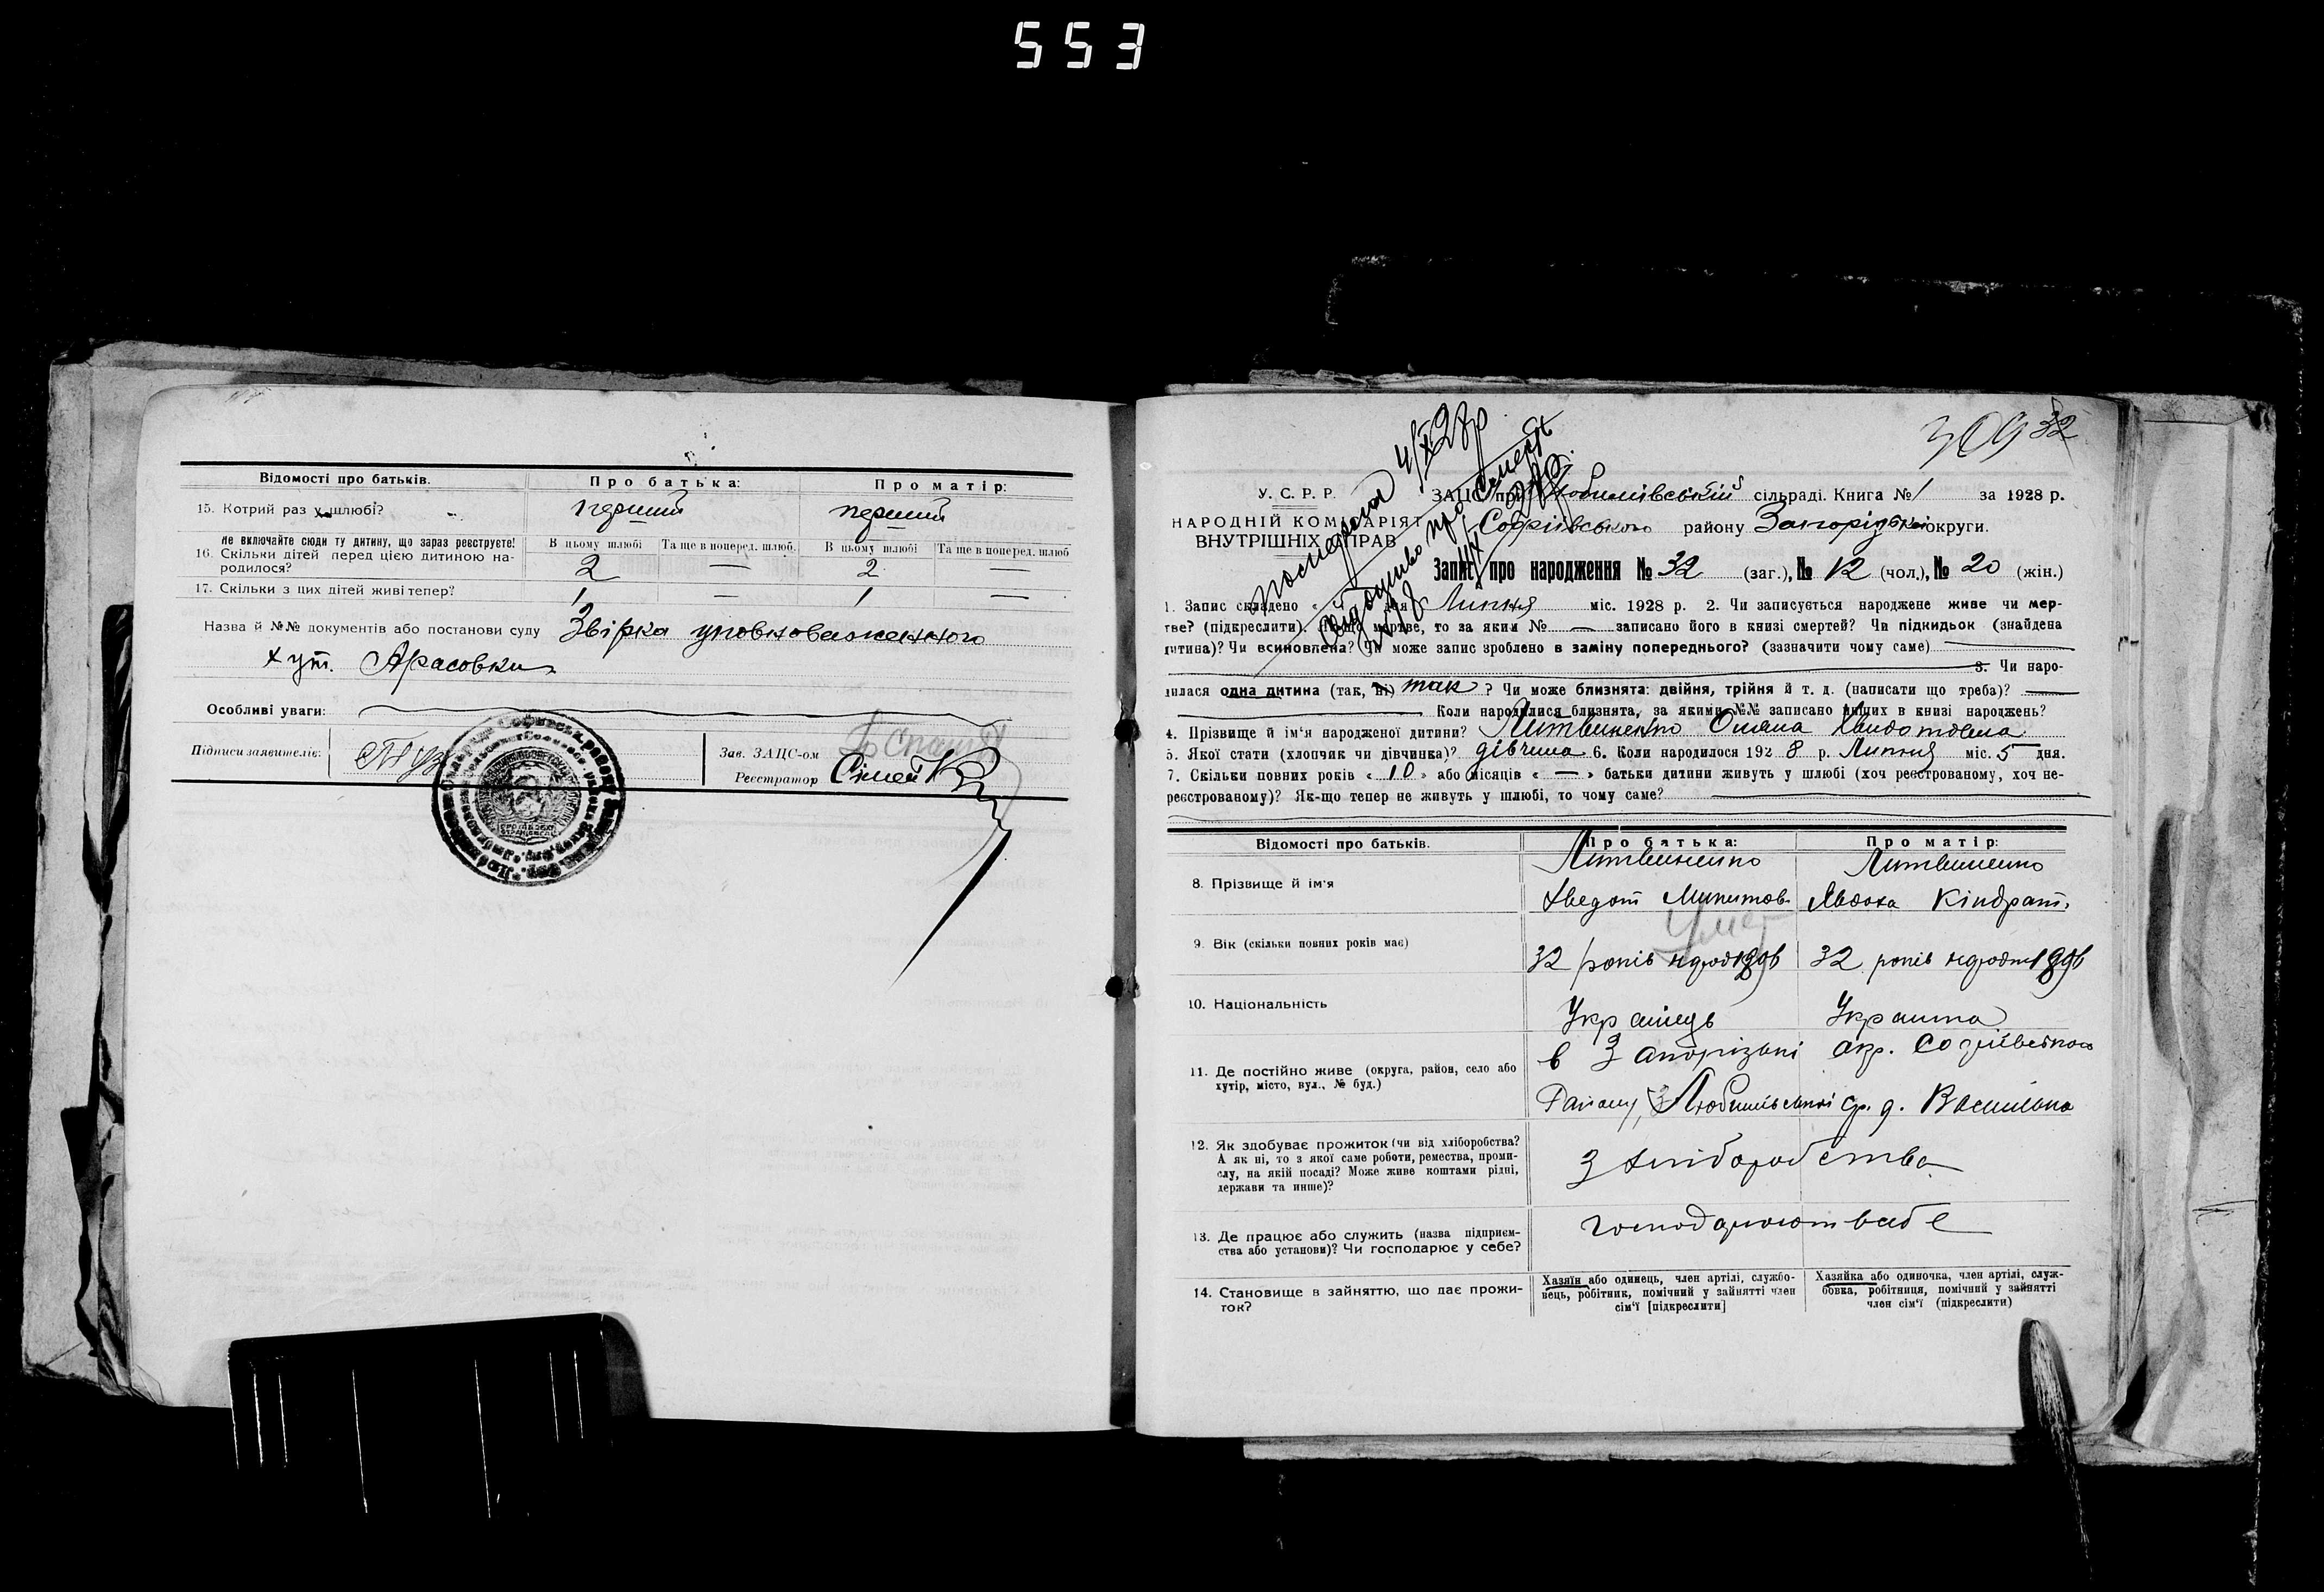 553
Відомості про батьків. Про батька: Про матір:
15. Котрий раз у шлюбі? перший перший
не включайте сюди ту дитину, що зараз реєструєте! В цьому шлюбі Та ще в поперед. шлюб. В цьому шлюбі Та ще в поперед. шлюб
16. Скільки дітей перед цією дитиною на-
родилося? 2 — 2 —
17. Скільки з цих дітей живі тепер? 1 — 1 —
Назва й №№ документів або постанови суду Звірка уповноваженного
хут.
Особливі уваги:
Підписи заявителів:
Зав. ЗАЦС-ом
Реєстратор
309 32
У. С. Р. Р.
НАРОДНІЙ КОМІСАРІЯТ
ВНУТРІШНІХ СПРАВ
4/X 28р
ЗАЦС при Любимівській сільраді. Книга № 1 за 1928 р.
Софіївського району Запорізької округи.
Запис про народження № 32 (заг.), № 12 (чол.), № 20 (жін.)
1. Запис складено « дня Липня міс. 1928 р. 2. Чи записується народжене живе чи мер-
тве? (підкреслити). Якщо мертве, то за яким № — записано його в книзі смертей? Чи підкидьок (знайдена
дитина)? Чи всиновлена? (Чи може запис зроблено в заміну попереднього? (зазначити чому саме)
3. Чи наро-
дилася одна дитина (так, ні) так ? Чи може близнята: двійня, трійня й т. д. (написати що треба)? —
Коли народилися близнята, за якими №№ записано инших в книзі народжень?
4. Прізвище й ім'я народженої дитини? Литвиненко Оляна Хвидотовна
5. Якої стати (хлопчик чи дівчинка)? дівчина 6. Коли народилося 192 8 р. Липня міс. 5 дня.
7. Скільки повних років « 10 » або місяців « — » батьки дитини живуть у шлюбі (хоч реєстрованому, хоч не-
реєстрованому)? Як-що тепер не живуть у шлюбі, то чому саме?
Відомості про батьків. Про батька: Про матір:
8. Прізвище й ім'я Литвиненко Литвиненко
Хведот Микитов. Явдоха Кіндрат.
9. Вік (скільки повних років має)
32 років народ 1896 32 років народ 1896
10. Національність Українець Українка
11. Де постійно живе (округа, район, село або
хутір, місто, вул., № буд.)
в Запорізькі окр. Софіївського
Району, Любимівської с.р. д. Васильківка
12. Як здобуває прожиток (чи від хліборобства?
А як ні, то з якої саме роботи, ремества, проми-
слу, на якій посаді? Може живе коштами рідні,
держави та инше)?
З хліборобства
13. Де працює або служить (назва підприєм-
ства або установи)? Чи господарює у себе?
господарюют всебе
14. Становище в зайняттю, що дає прожи-
ток?
Хазяїн або одинець, член артілі, службо-
вець, робітник, помічний у зайнятті член
сім'ї [підкреслити]
Хазяйка або одиночка, член артілі, служ-
бовка, робітниця, помічний у зайнятті
член сім'ї (підкреслити)